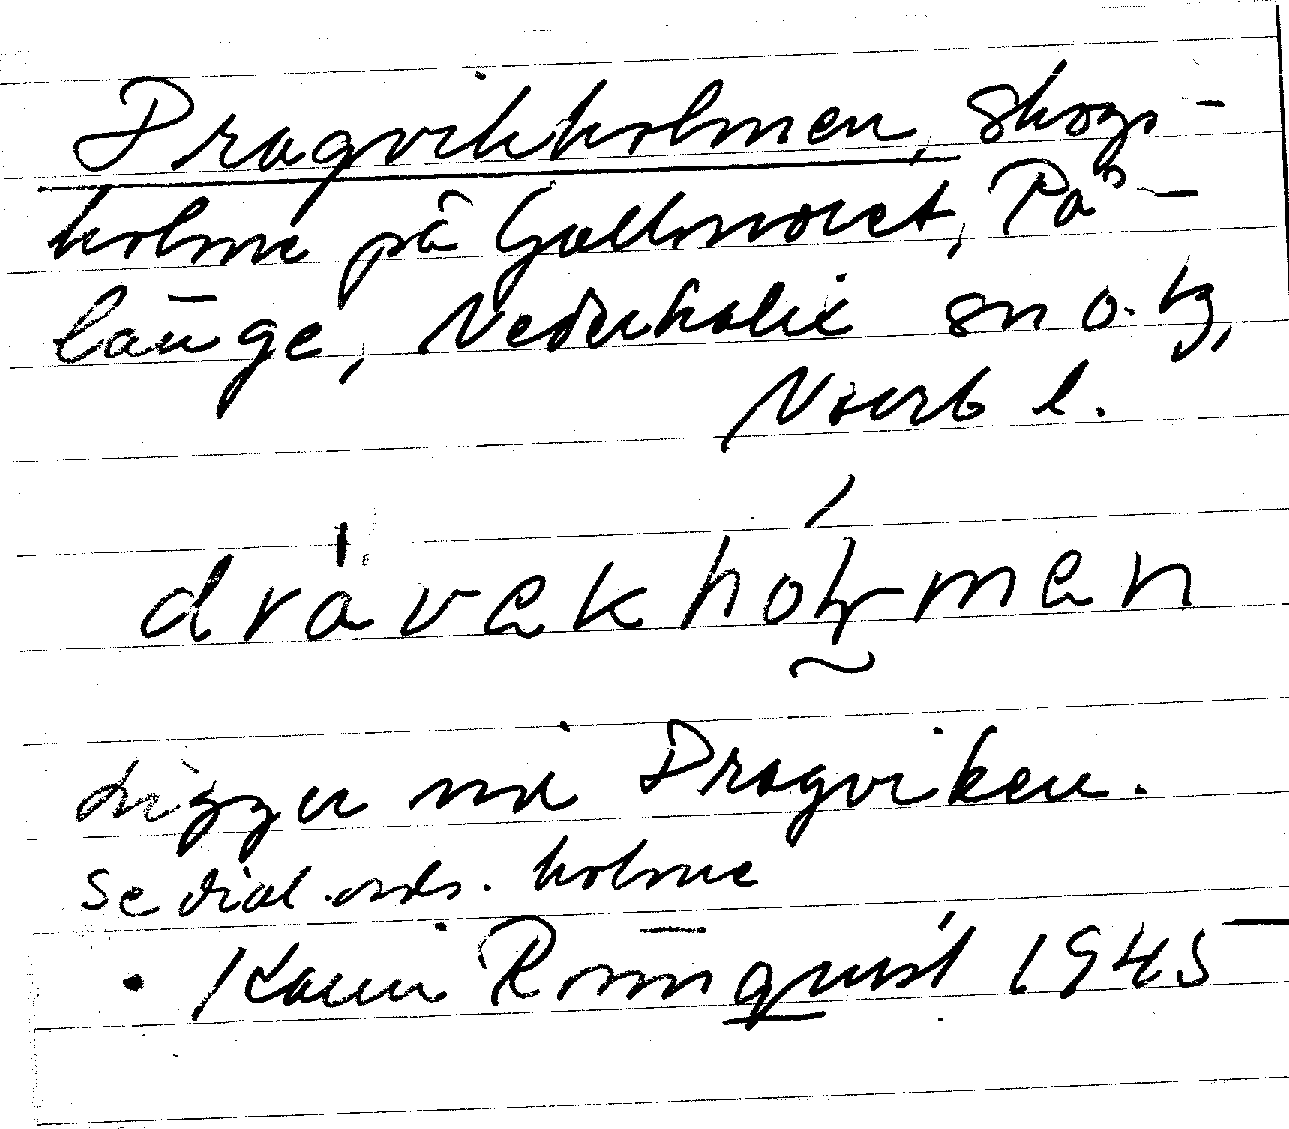 Dragvikholmen, skogs-
holme på Gallmoret, På-
länge, Nederkalix sn o. tg,
Norrb l.
dravekholmen
Ligger vid Dragviken.
Se dial. ords. holme
Karin Rönnquist 1945